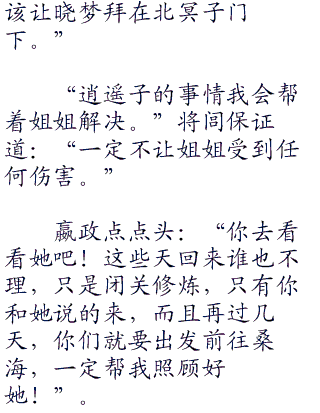 该让晓梦拜在北冥子门
下。”
“逍遥子的事情我会帮
着姐姐解决。”将闾保证
道：“一定不让姐姐受到任
何伤害。”
嬴政点点头：“你去看
看她吧！这些天回来谁也不
理，只是闭关修炼，只有你
和她说的来，而且再过几
天，你们就要出发前往桑
海，一定帮我照顾好
她！”。